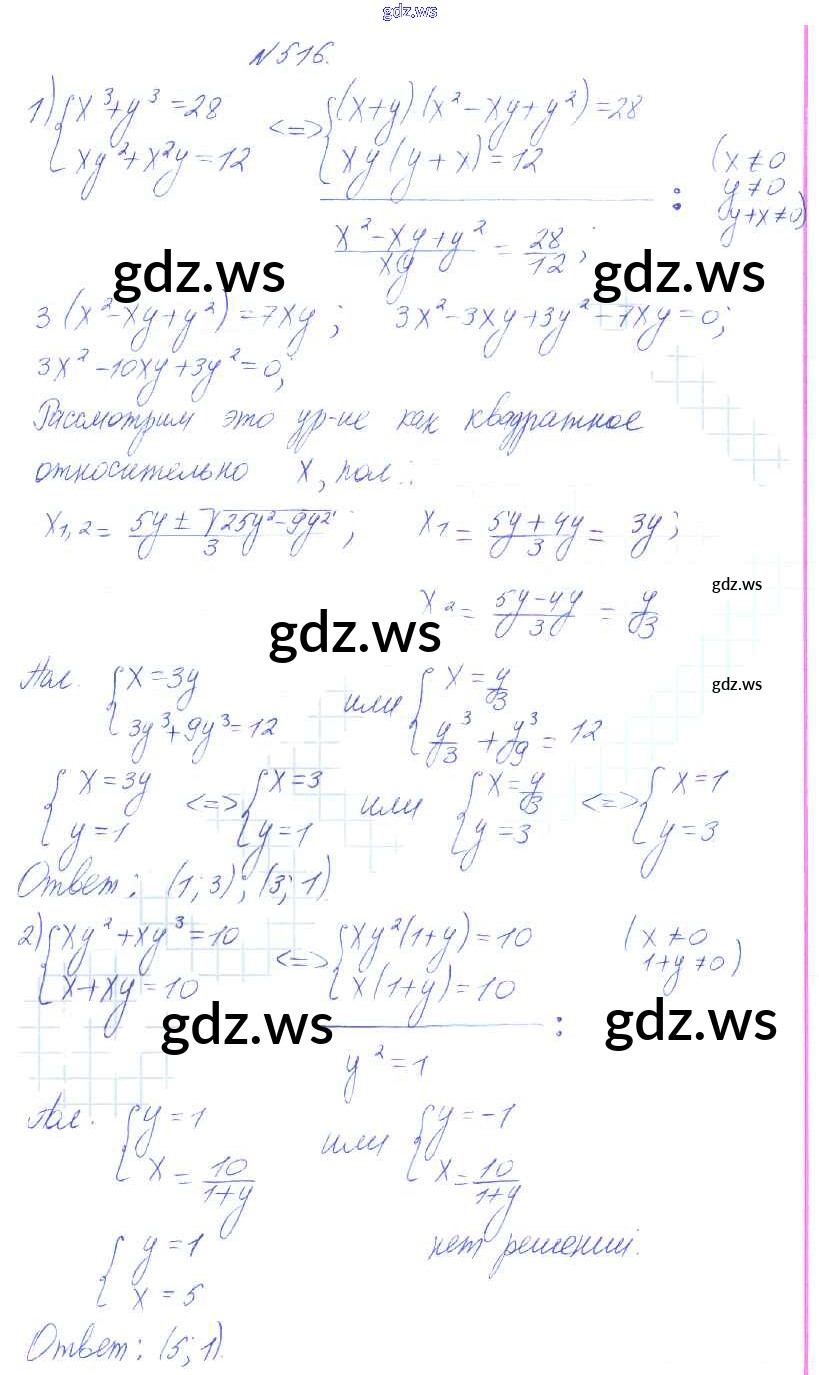 gdz.ws
N 516.
1) { x³+y³=28 <=> { (x+y)(x²-xy+y²)=28
{ xy²+x²y=12 { xy(y+x)=12 : (x≠0 y≠0 y+x≠0)
(x²-xy+y²)/(xy) = 28/12;
gdz.ws gdz.ws
3(x²-xy+y²)=7xy; 3x²-3xy+3y²-7xy=0;
3x²-10xy+3y²=0;
Рассмотрим это ур-ие как квадратное
относительно x, пол.:
x1,2 = (5y ± √(25y²-9y²))/3; x1 = (5y+4y)/3 = 3y;
gdz.ws
x2 = (5y-4y)/3 = y/3
gdz.ws
gdz.ws
Пол. { x=3y или { x=y/3
{ 3y³+9y³=12 { y³/3 + y³/9 = 12
{ x=3y <=> { x=3 или { x=y/3 <=> { x=1
{ y=1 { y=1 { y=3 { y=3
Ответ: (1;3); (3;1)
2) { xy²+xy³=10 <=> { xy²(1+y)=10 (x≠0
{ x+xy=10 { x(1+y)=10 1+y≠0)
gdz.ws : gdz.ws
y²=1
Пол. { y=1 или { y=-1
{ x=10/(1+y) { x=10/(1+y)
{ y=1 нет решений.
{ x=5
Ответ: (5;1).